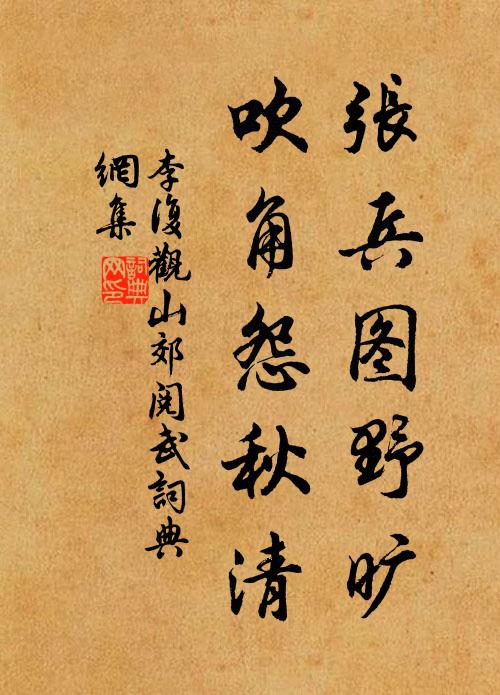 張兵图野旷
吹角怨秋清
李復觀山郊閱武詞典
網集
詞典
网印